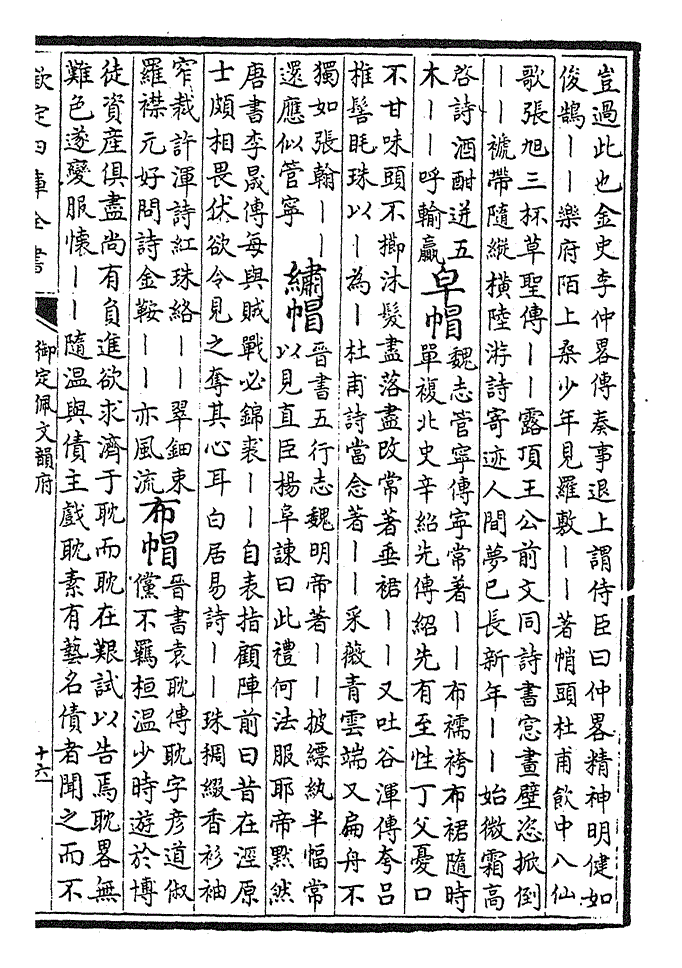 豈過此也金史李仲畧傳奏事退上謂侍臣曰仲畧精神明健如
俊鶻丨丨樂府陌上桑少年見羅敷丨丨著帩頭杜甫飲中八仙
歌張旭三杯草聖傳丨丨露頂王公前文同詩書窓畫壁恣掀倒
丨丨褫帶隨縱橫陸游詩寄迹人間夢已長新年丨丨始微霜高
啓詩酒酣迸五
木丨丨呼輸贏
皁帽
魏志管寧傳寧常著丨丨布襦袴布裙隨時
單複北史辛紹先傳紹先有至性丁父憂口
不甘味頭不櫛沐髮盡落盡改常著垂裙丨丨又吐谷渾傳夸呂
椎髻毦珠以丨為丨杜甫詩當念著丨丨采薇青雲端又扁舟不
獨如張翰丨丨
還應似管寧
繡帽
晉書五行志魏明帝著丨丨披縹紈半幅常
以見直臣楊阜諫曰此禮何法服耶帝默然
唐書李晟傳每與賊戰必錦裘丨丨自表指顧陣前曰昔在涇原
士頗相畏伏欲令見之奪其心耳白居易詩丨丨珠稠綴香衫袖
窄裁許渾詩紅珠絡丨丨翠鈿束
羅襟元好問詩金鞍丨丨亦風流
布帽
晉書袁耽傳耽字彦道俶
儻不羈桓温少時遊於博
徒資産俱盡尚有負進欲求濟于耽而耽在艱試以告焉耽畧無
難色遂變服懷丨丨隨温與債主戲耽素有藝名債者聞之而不
欽定四庫全書
御定佩文韻府
十六